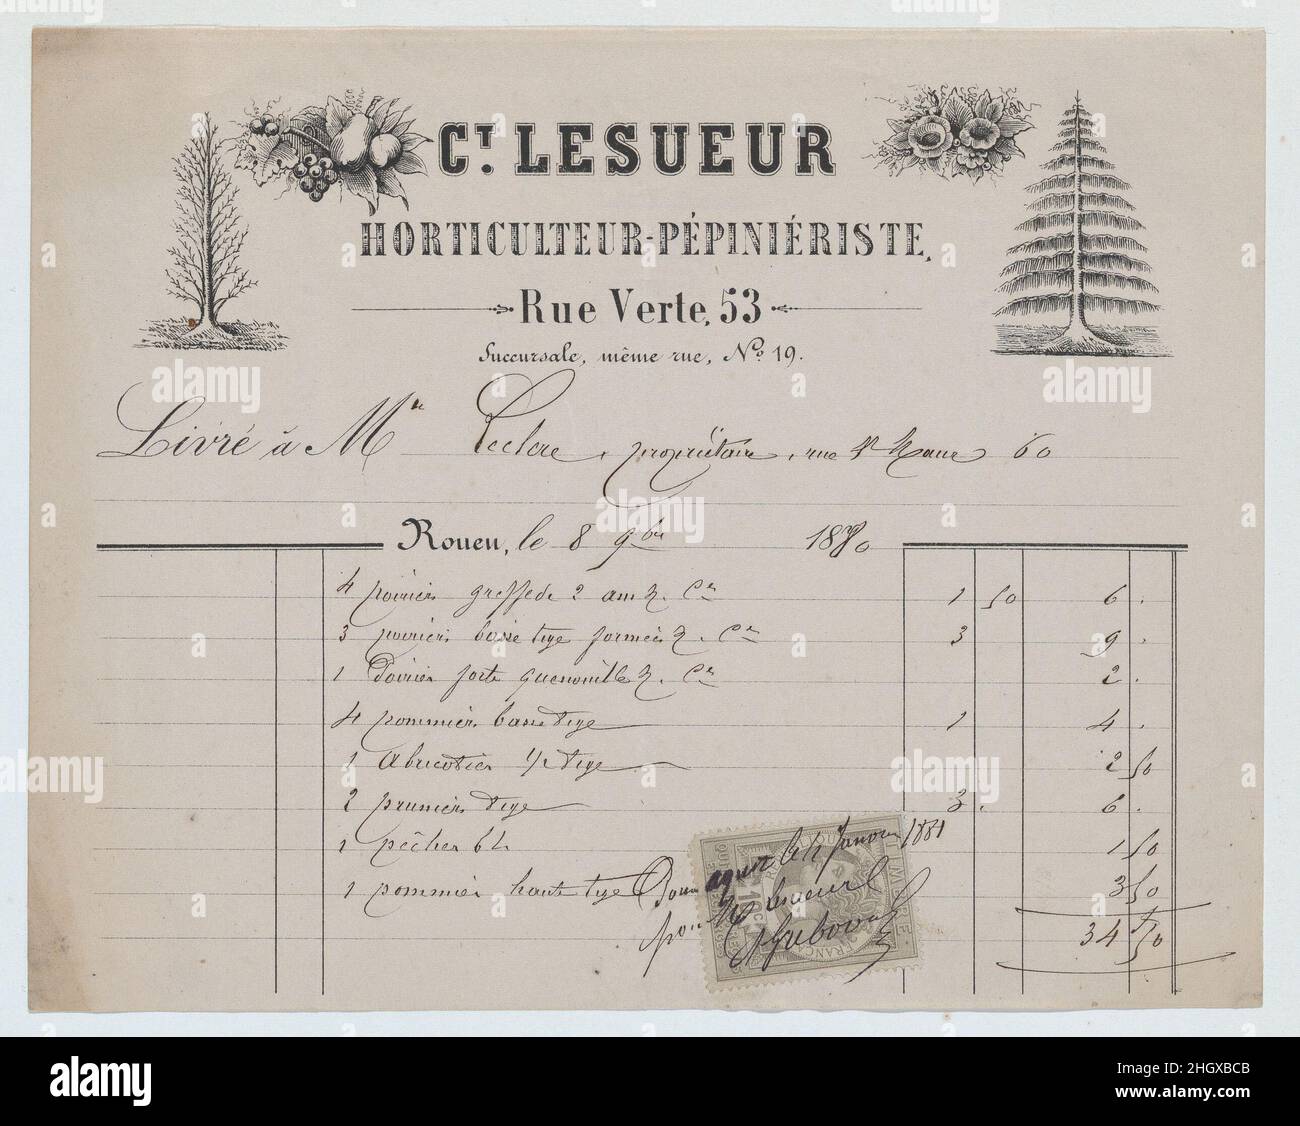 CT. LESUEUR
HORTICULTEUR-PÉPINIÉRISTE,
Rue Verte, 53
Succursale, même rue, No 19.
Livré à Mr Leclere, propriétaire, rue St Maur 60
Rouen, le 8 9bre 1880
4 poiriers greffe de 2 ans 1 50 6 .
3 poiriers basse tige formées 3 9 .
1 Poirier forte quenouille 2 .
4 pommiers basse tige 1 4 .
1 Abricotier 1/2 tige 2 50
2 pruniers tige 3 . 6 .
1 pêcher 1 50
1 pommier haute tige 3 50
34 50
Pour acquit le Janvier 1881
pour Lesueur
10 c
FRANÇAISE
alamy
Image ID: 2HGXBCB
www.alamy.com